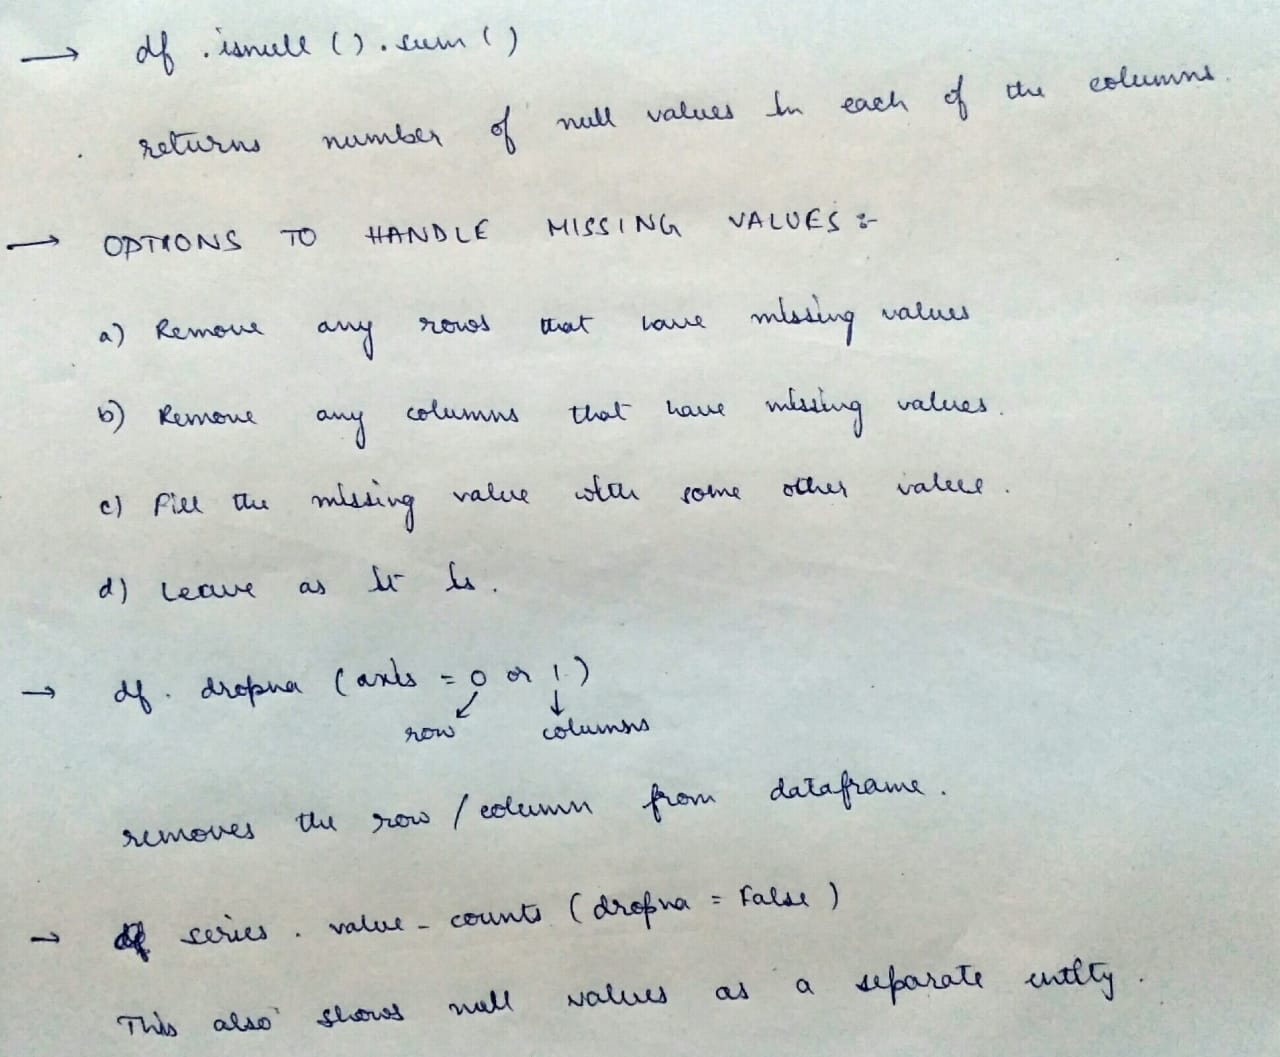 → df . isnull ( ) . sum ( )
returns number of null values in each of the columns.
→ OPTIONS TO HANDLE MISSING VALUES :-
a) Remove any rows that have missing values
b) Remove any columns that have missing values.
c) Fill the missing value with some other value.
d) Leave as it is.
→ df . dropna ( axis = 0 or 1 )
row columns
removes the row / column from dataframe.
→ series . value_counts ( dropna = False )
This also shows null values as a separate entity.